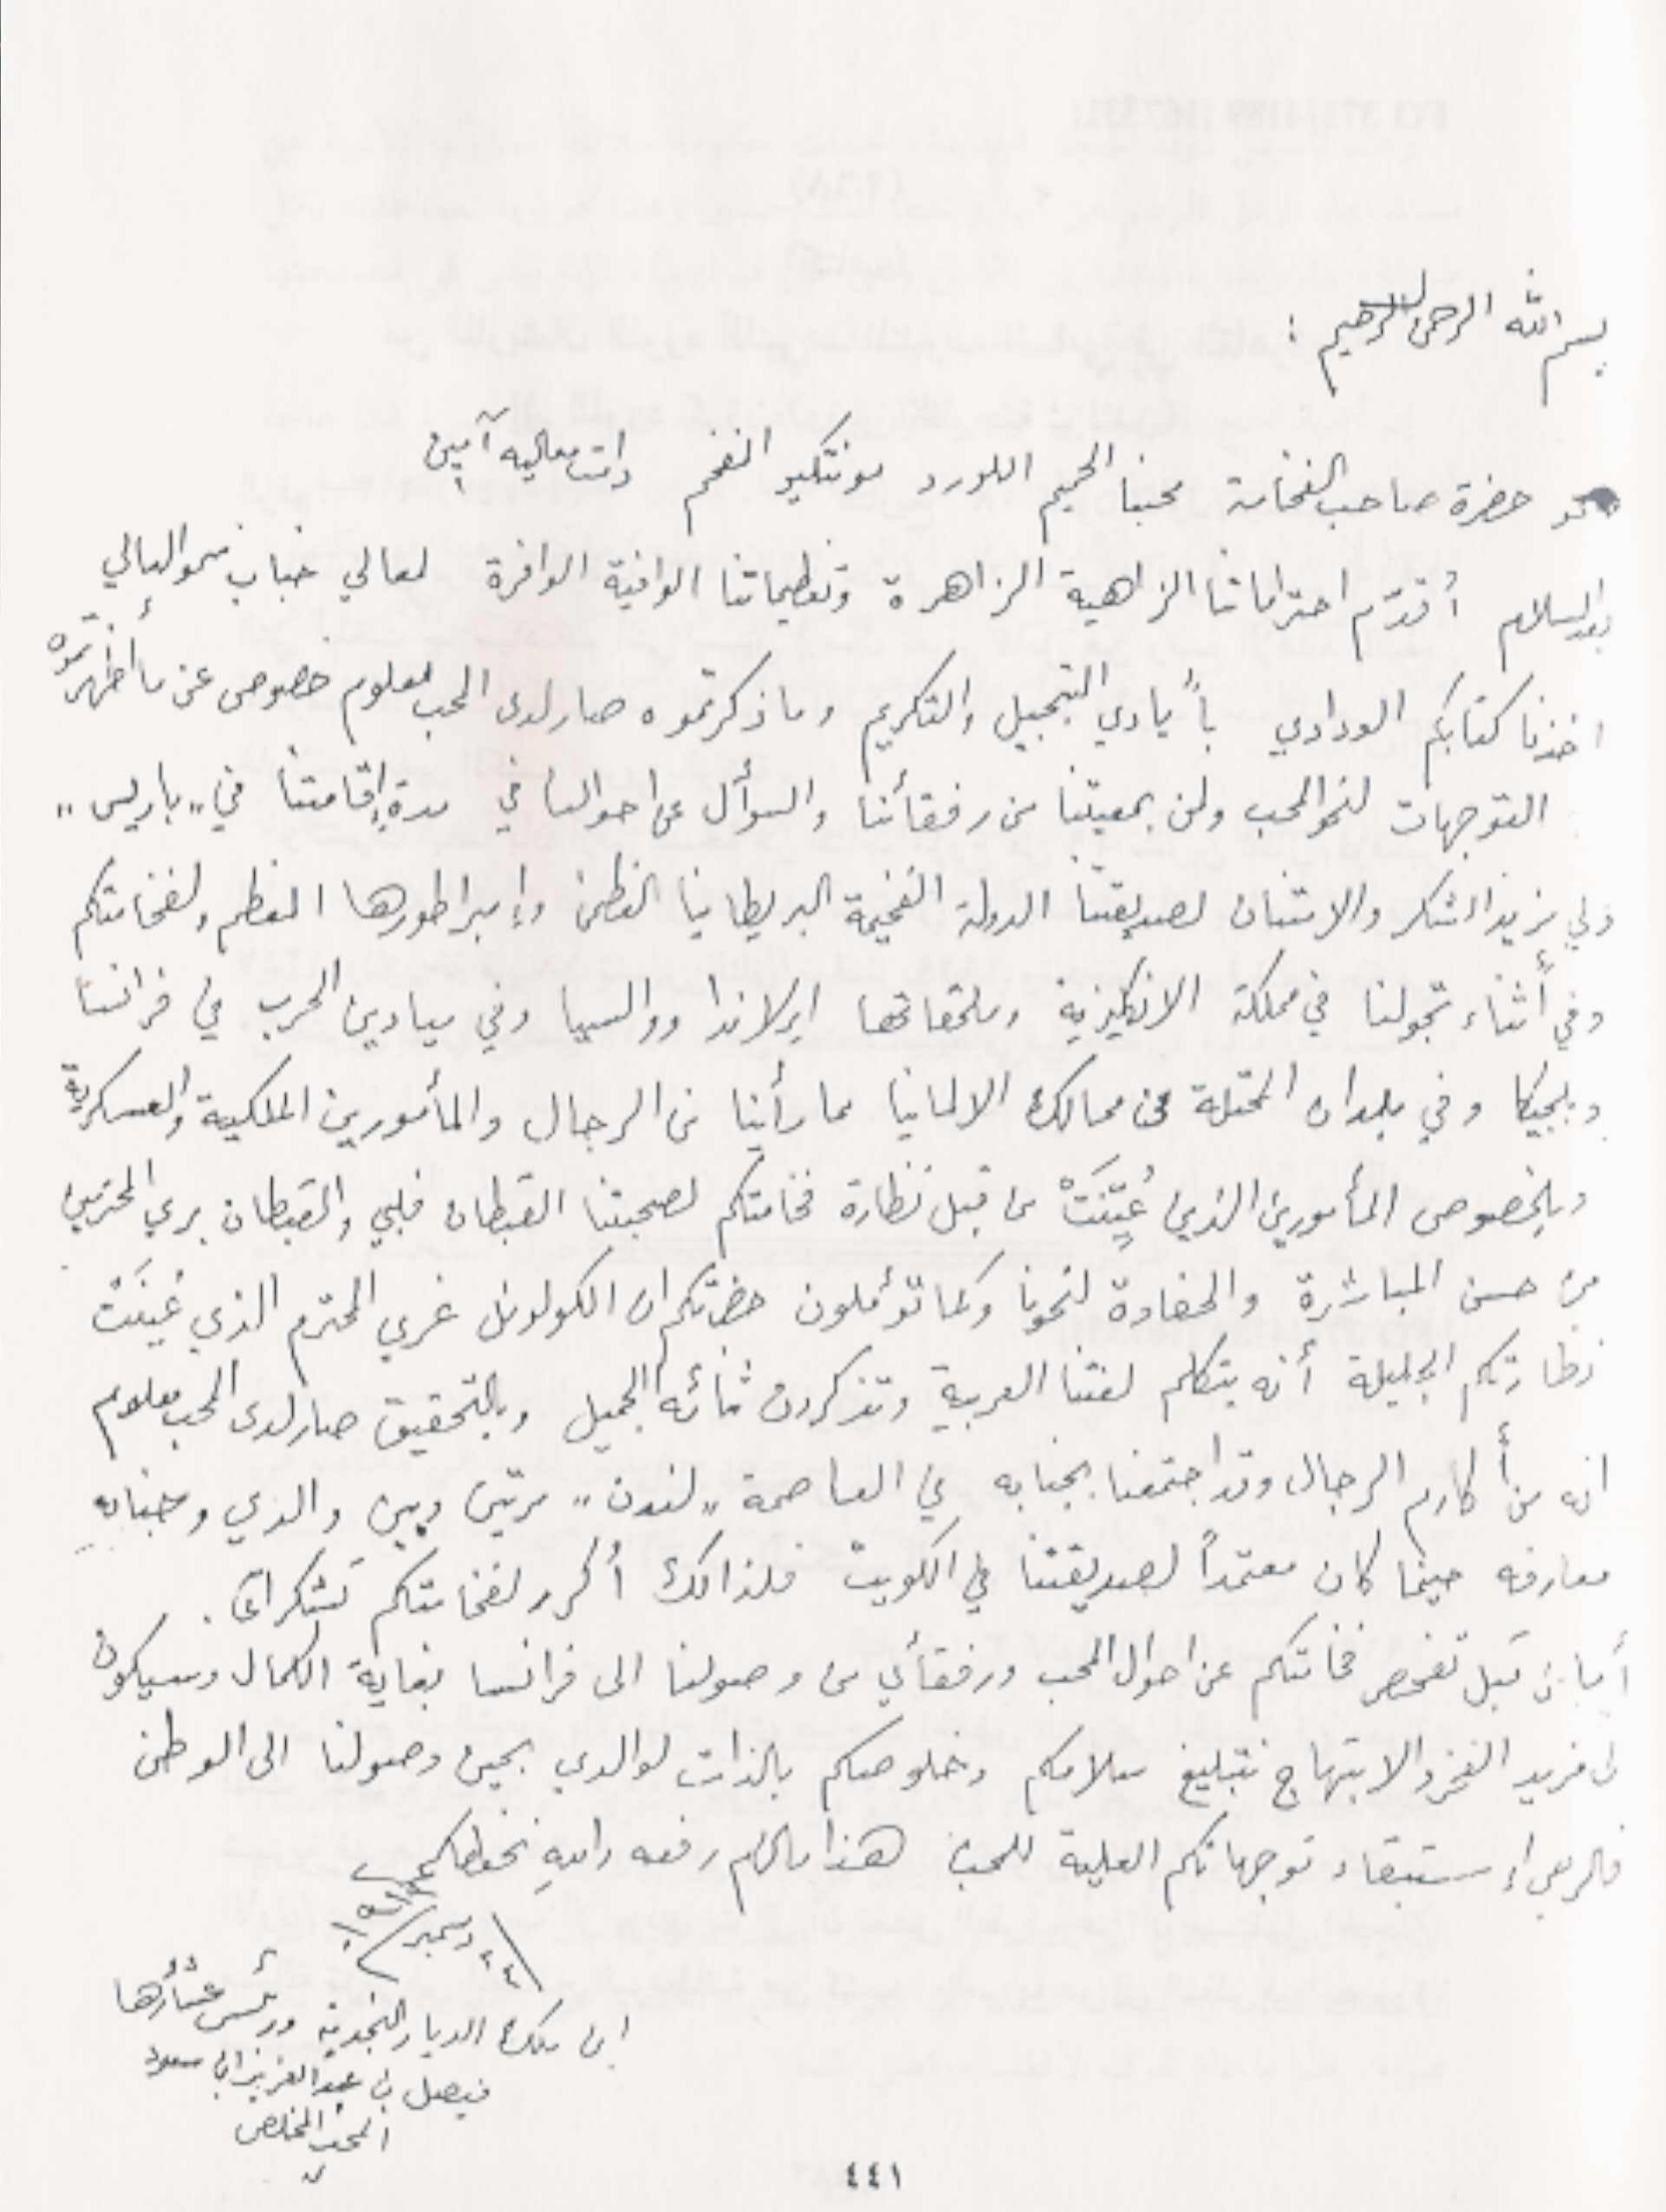 بسم الله الرحمن الرحيم :
نحو حضرة صاحب الفخامة محبنا الحميم اللورد مونتكيو المفخم دامت معاليه آمين
بعد السلام أقدّم احتراماتنا الزاهية الزاهرة وتعظيماتنا الوافية الوافرة لمعالي جناب سمو العالي
اخذنا كتابكم الودادي بأيادي التبجيل والتكريم وما ذكرتموه صار لدى المحب معلوم خصوصى عن ما أظهرتموه
التوجهات لنحو المحب ولمن بمعيتنا من رفقائنا والسوأل عن احوالنا في مدة إقامتنا في „باريس„
ولي مزيد الشكر والامتنان لصديقتنا الدولة الفخيمة البريطانيا العظمى وإمبراطورها المعظم ولفخامتكم
وفي أثناء تجولنا في مملكة الانكليزية وملحقاتها ايرلاندا ووالسيا وفي ميادين الحرب في فرانسا
وبلجيكا وفي بلدان المحتلة من ممالك الالمانيا مما رأينا من الرجال والمأمورين الملكية والعسكرية
وبلخصوص المأمورين الذين عُيّنَتْ من قبل نظارة فخامتكم لصحبتنا القبطان فلبي والقبطان بري المحترمين
من حسن المباشرة والحفاوة لنحونا وكما تؤملون حضرتكم ان الكولونل غري المحترم الذي عُينَتْ
نظارتكم الجليلة أنه يتكلم لغتنا العربية وتذكرون ثنائه الجميل وبالتحقيق صار لدى المحب معلوم
انه من أكارم الرجال وقد اجتمعنا بجنابه في العاصمة „لندن„ مرتين وبين والدي وجنابه
معارفه حينما كان معتمداً لصديقتنا في الكويت فلذالك أكرر لفخامتكم تشكراتي .
أما من قبل تفحص فخامتكم عن احوال المحب ورفقائي من وصولنا الى فرانسا بغاية الكمال وسيكون
لى مزيد الفخر والابتهاج بتبليغ سلامكم وخلوصكم بالذات لوالدي بحين وصولنا الى الوطن
فالرجى إستبقاء توجهاتكم العلية للمحب هذا مالزم رفعه والله يحفظكم
٢٤ دسمبر ١٩١٩
ابن ملك الديار النجدية ورئيس عشائرها
فيصل بن عبد العزيز ال سعود
المحب المخلص
٤٤١